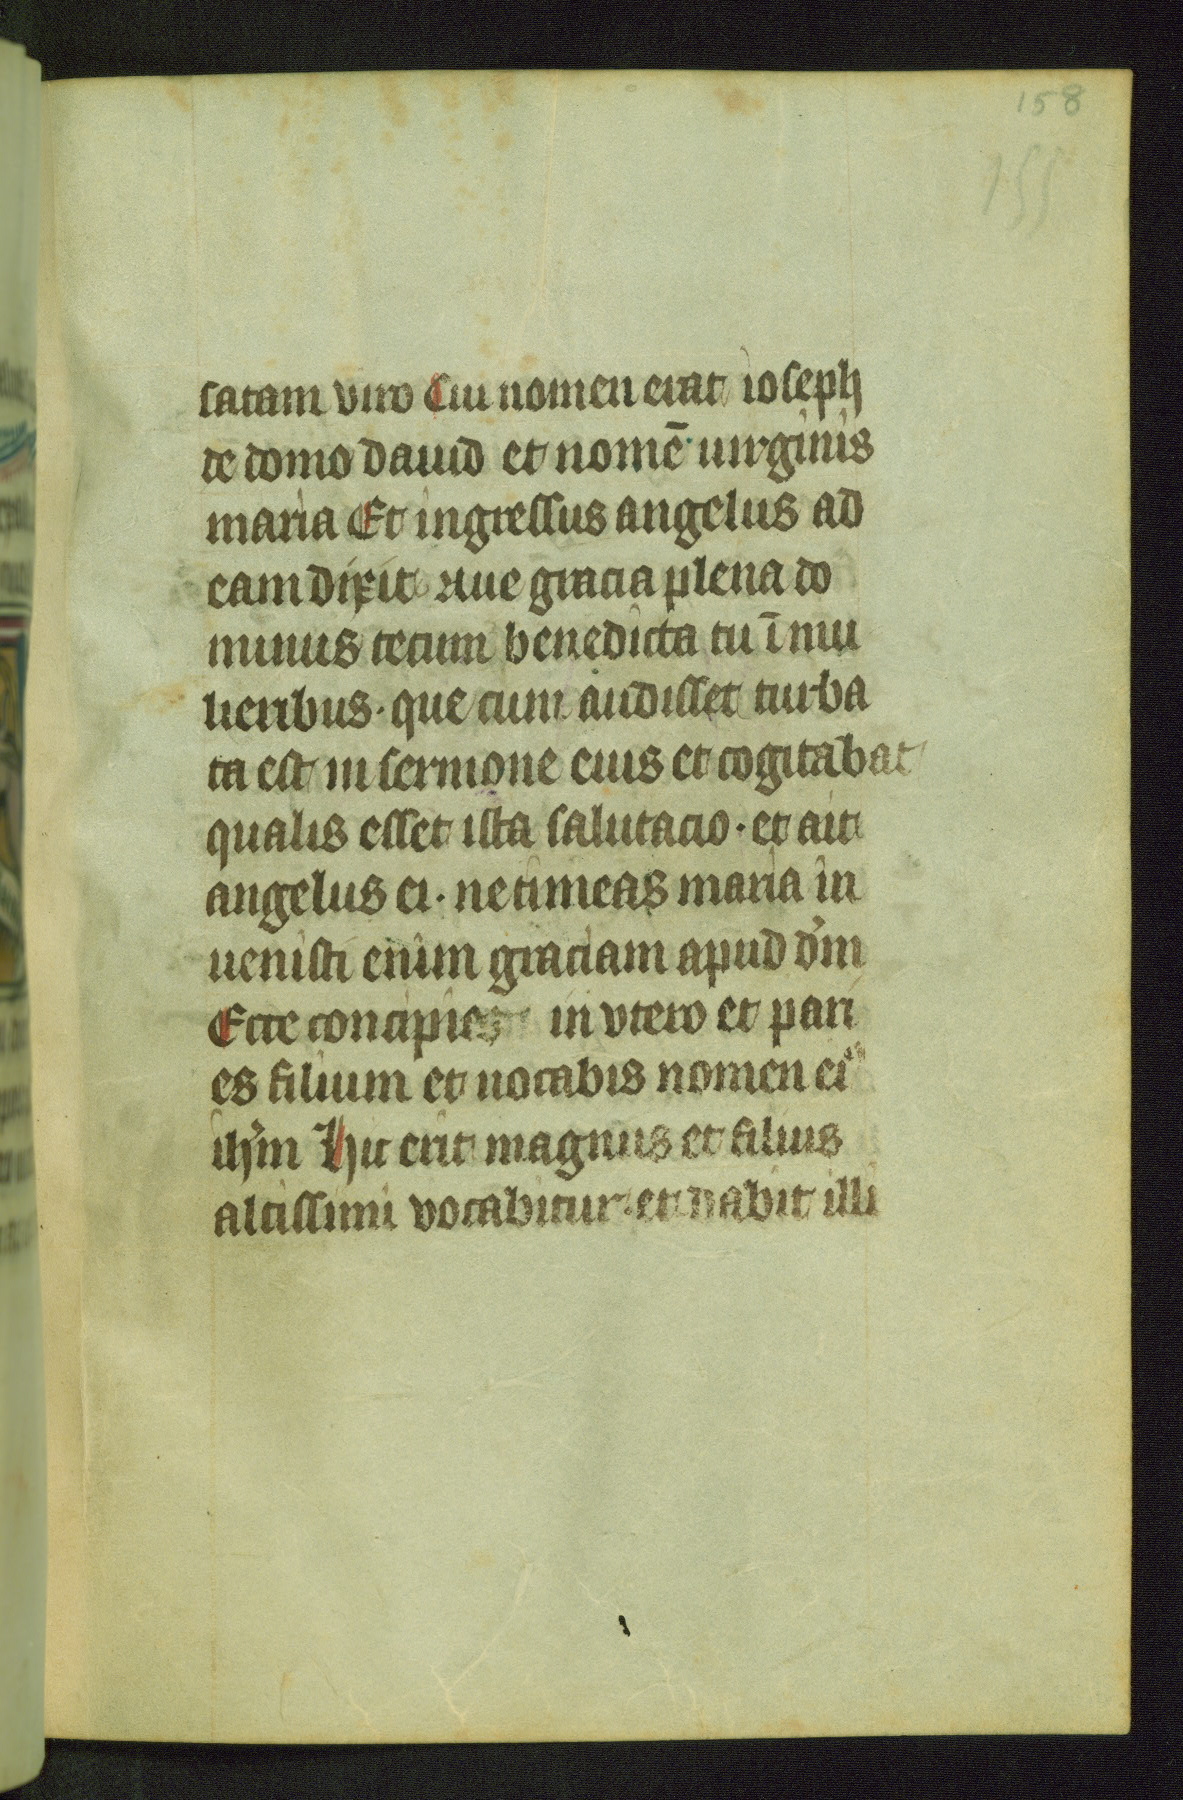 158
155
satam viro Cui nomen erat ioseph
de domo dauid et nomē uirginis
maria Et ingressus angelus ad
eam dixit Aue gracia plena do
minus tecum benedicta tu ī mu
lieribus · que cum audisset turba
ta est in sermone eius et cogitabat
qualis esset ista salutacio · et ait
angelus ei · ne timeas maria in
uenisti enim graciam apud dm̄
Ecce concipies in vtero et pari
es filium et uocabis nomen eiꝰ
ihm̄ Hic erit magnus et filius
altissimi vocabitur · et dabit illi